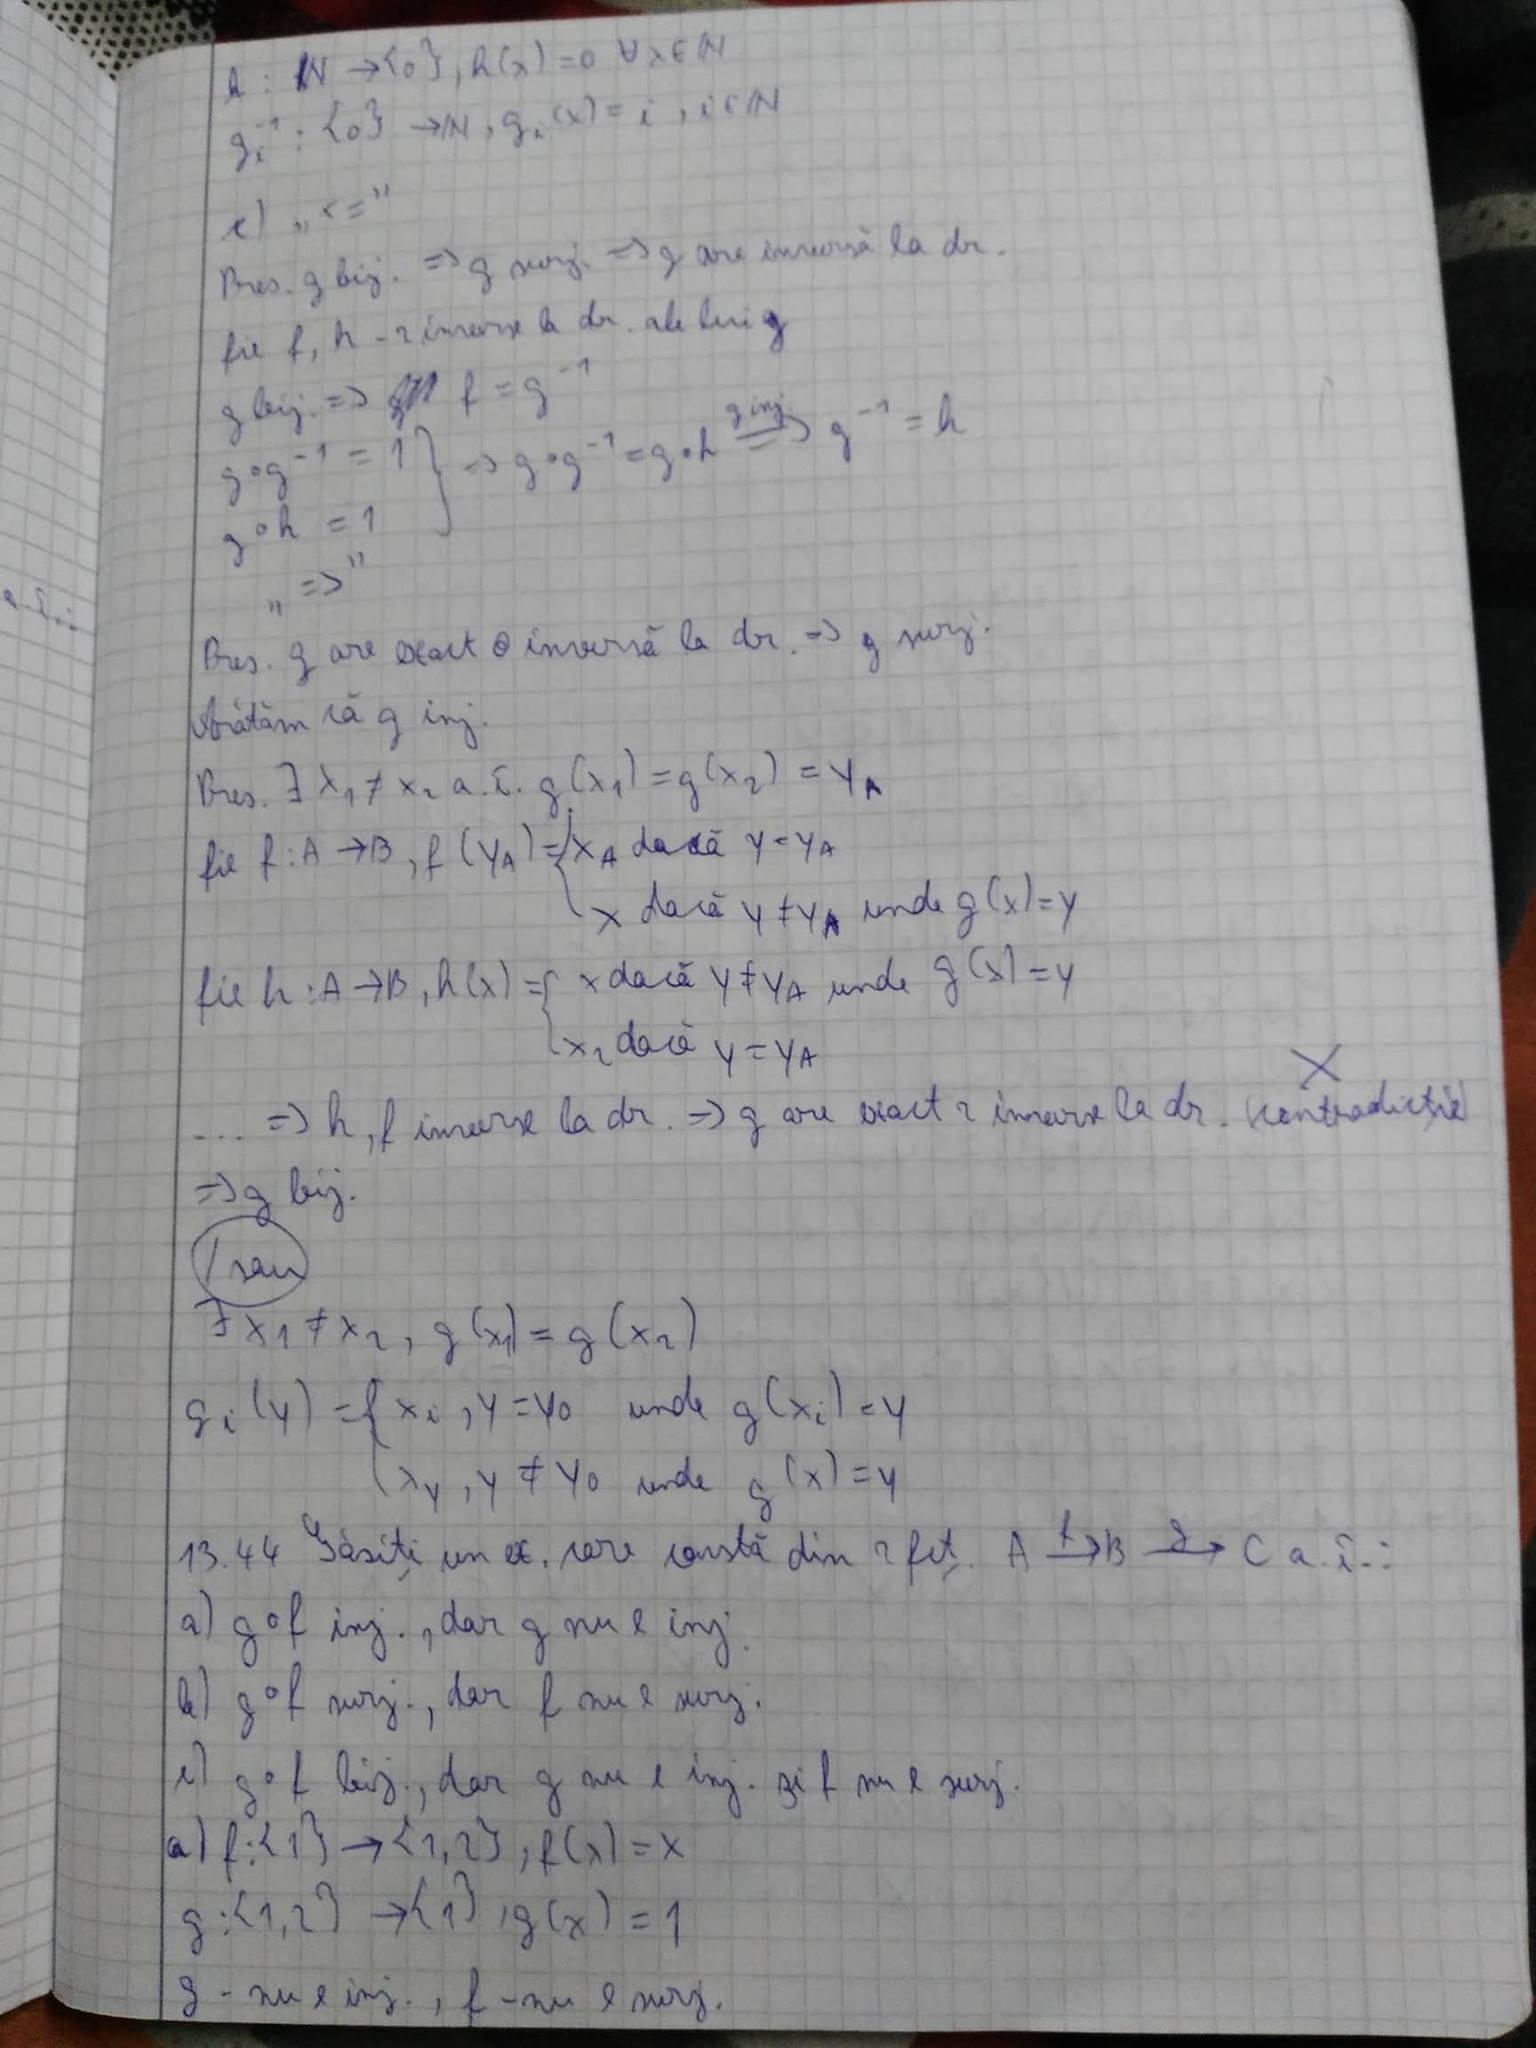 h : ℕ → {0}, h(x) = 0 ∀ x ∈ ℕ
g_i^{-1} : {0} → ℕ, g_i(x) = i, i ∈ ℕ
c) „<="
Pres. g bij. => g surj. => g are inversă la dr.
fie f, h - 2 inverse la dr. ale lui g
g bij. => f = g^{-1}
g∘g^{-1} = 1 } => g∘g^{-1} = g∘h =g inj.=> g^{-1} = h
g∘h = 1
„=>"
Pres. g are exact o inversă la dr. => g surj.
Arătăm că g inj.
Pres. ∃ x_1 ≠ x_2 a.î. g(x_1) = g(x_2) = y_A
fie f : A → B, f(y_A) = { x_A dacă y = y_A
x dacă y ≠ y_A unde g(x) = y
fie h : A → B, h(x) = { x dacă y ≠ y_A unde g(x) = y
x_2 dacă y = y_A
X
.... => h, f inverse la dr. => g are exact 2 inverse la dr. (contradicție)
=> g bij.
sau
∃ x_1 ≠ x_2, g(x_1) = g(x_2)
g_i(y) = { x_i, y = y_0 unde g(x_i) = y
x_y, y ≠ y_0 unde g(x) = y
13.44 Găsiți un ex. care constă din 2 fct. A –f→ B –g→ C a.î.:
a) g∘f inj., dar g nu e inj.
b) g∘f surj., dar f nu e surj.
c) g∘f bij., dar g nu e inj. și f nu e surj.
a) f : {1} → {1,2}, f(x) = x
g : {1,2} → {1}, g(x) = 1
g - nu e inj., f - nu e surj.